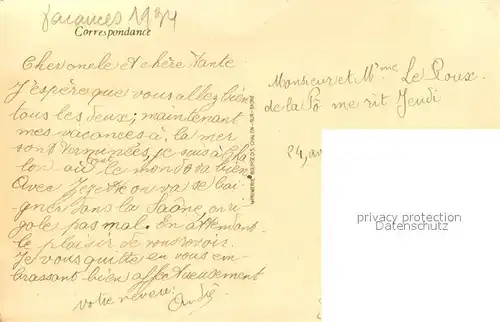 vacances 1934
Correspondance
Cher oncle et chère Tante
J'espère que vous allez bien
tous les deux; maintenant
mes vacances à la mer
sont terminées, je suis à Cha
lon où tout le monde va bien
Avec Jezette on va se bai-
gner dans la Saône, on ri
gole pas mal. En attendant
le plaisir de vous revoir
Je vous quitte en vous em-
brassant bien affectueusement
votre neveu: André
IMPRIMERIE BOURGEOIS CHALON-SUR-SAONE
Monsieur et Mme Le Roux.
de la
24, av
privacy protection
Ansichtskartenversand.com